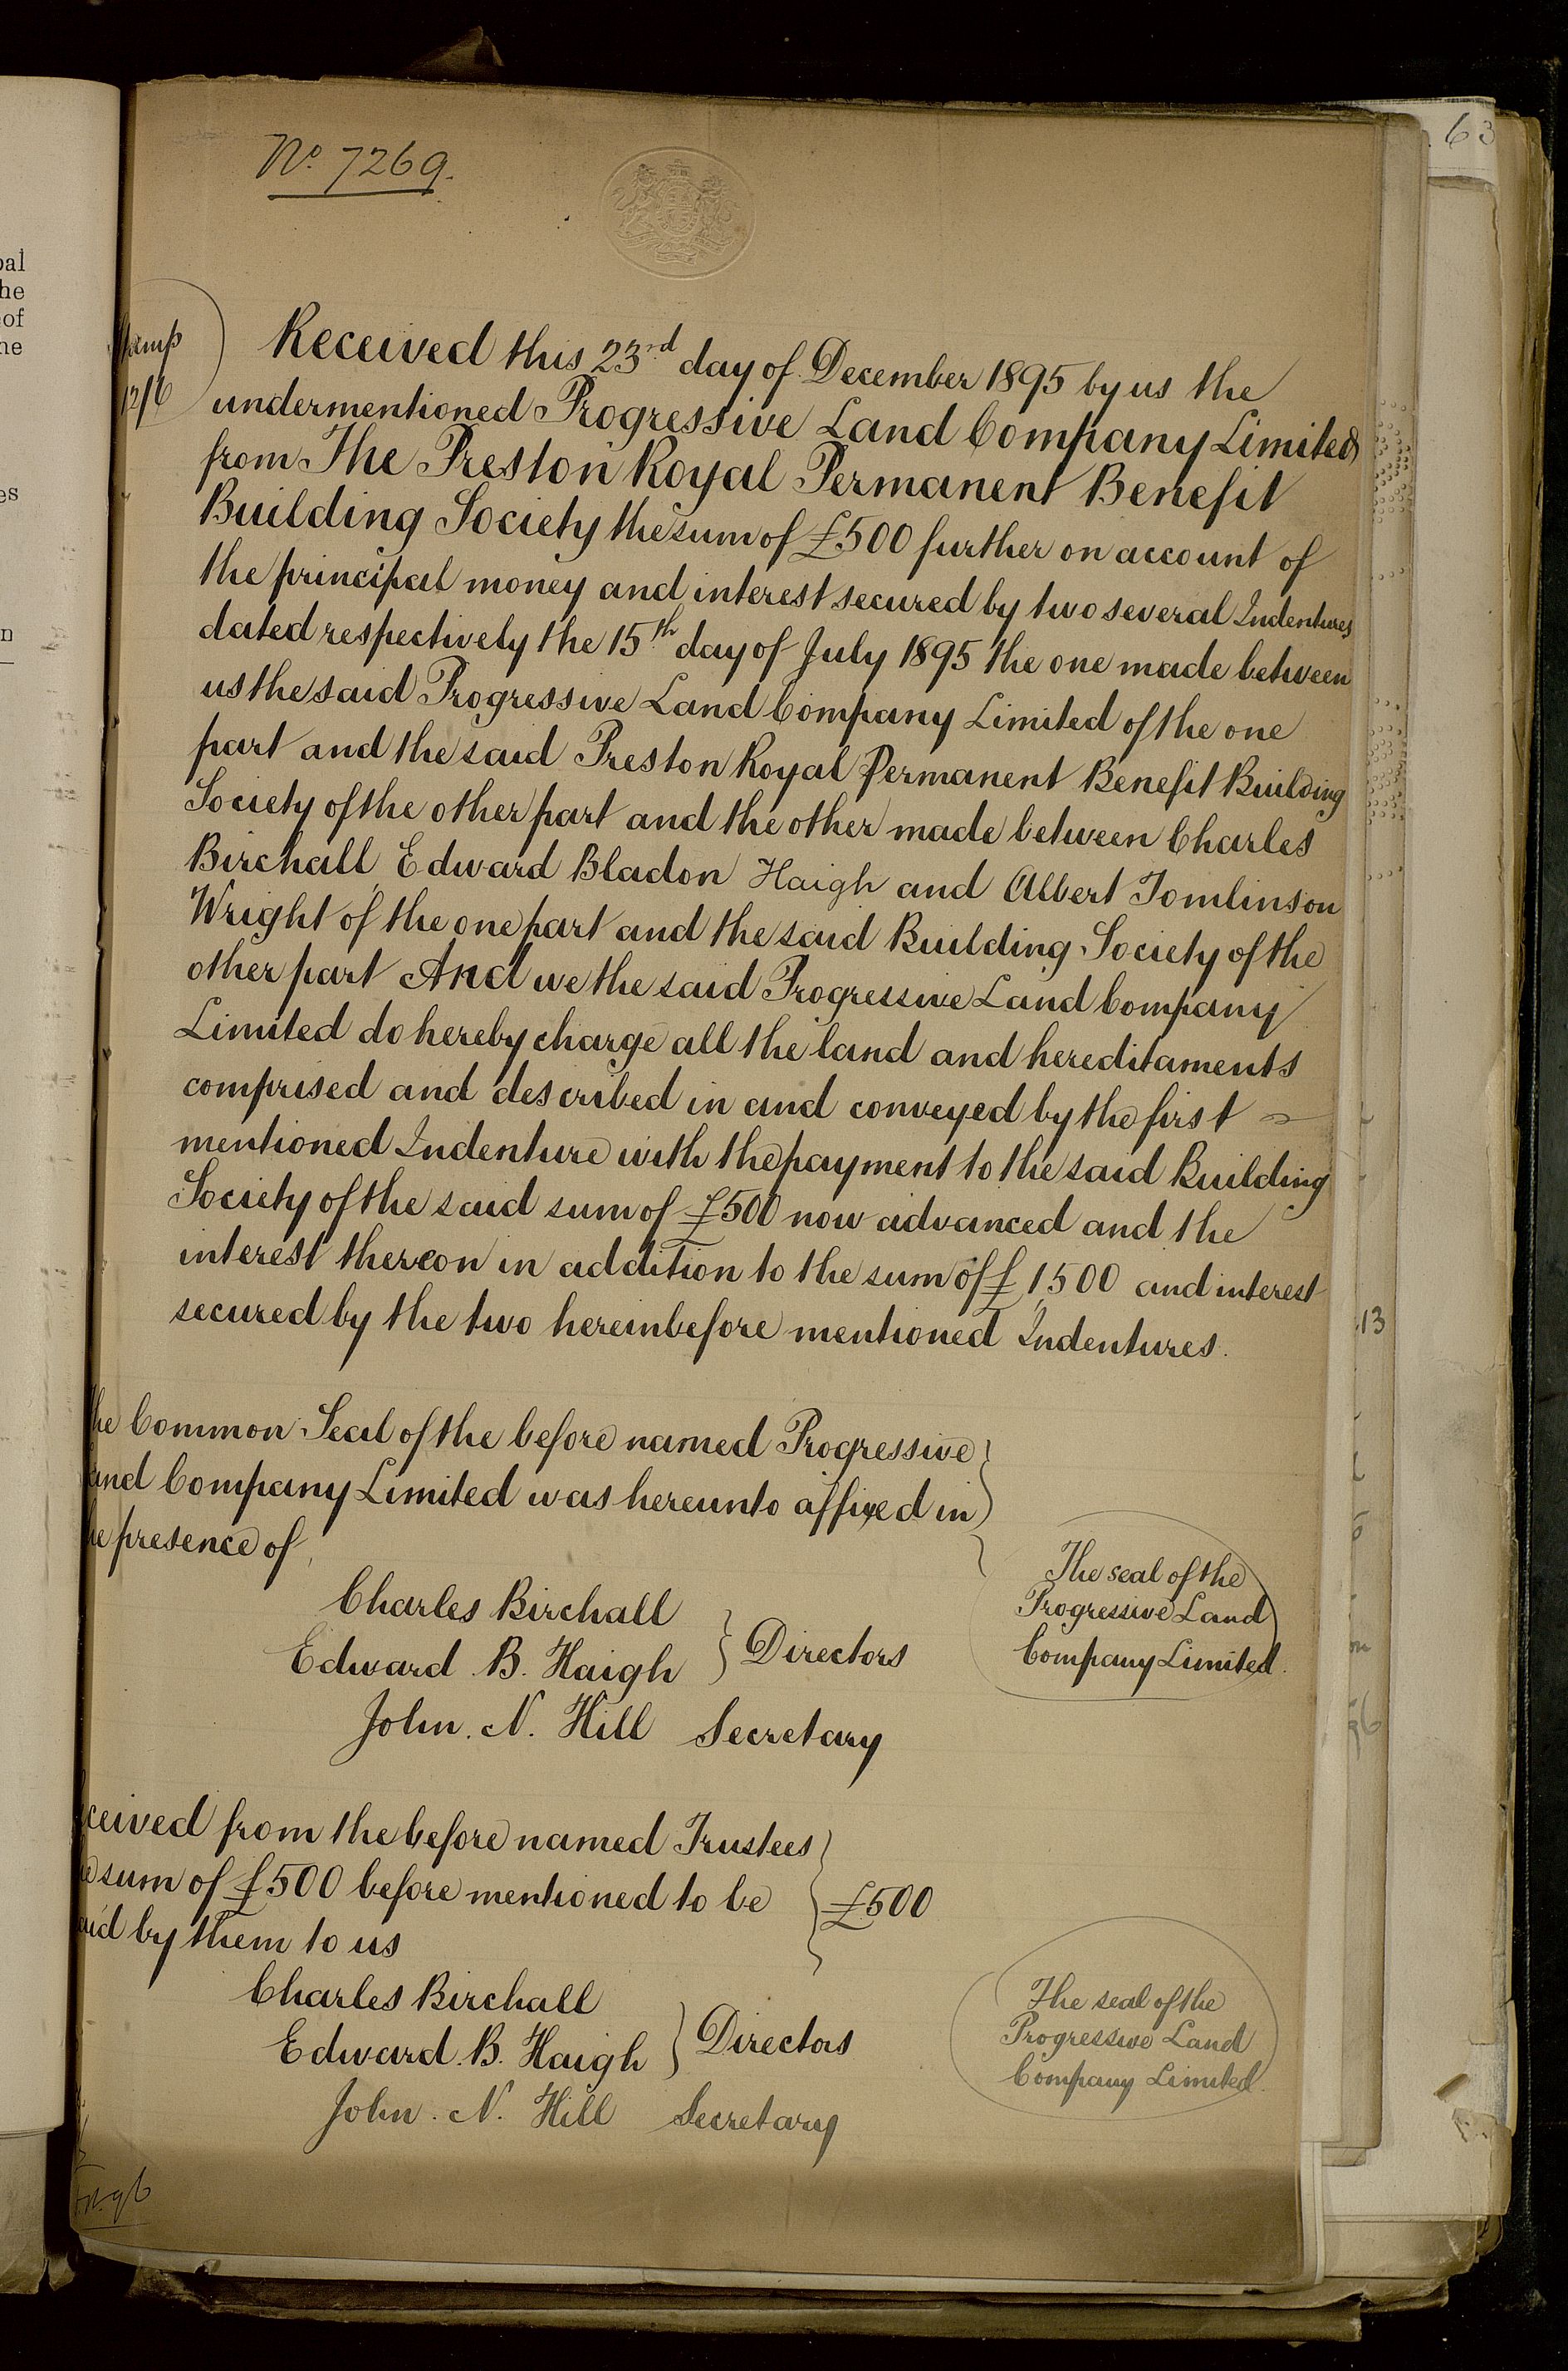 63
No. 7269.
12/6
Received this 23rd day of December 1895 by us the
undermentioned Progressive Land Company Limited
from The Preston Royal Permanent Benefit
Building Society the sum of £500 further on account of
the principal money and interest secured by two several Indentures
dated respectively the 15th day of July 1895 the one made between
us the said Progressive Land Company Limited of the one
part and the said Preston Royal Permanent Benefit Building
Society of the other part and the other made between Charles
Birchall Edward Bladon Haigh and Albert Tomlinson
Wright of the one part and the said Building Society of the
other part And we the said Progressive Land Company
Limited do hereby charge all the land and hereditaments
comprised and described in and conveyed by the first
mentioned Indenture with the payment to the said Building
Society of the said sum of £500 now advanced and the
interest thereon in addition to the sum of £1,500 and interest
secured by the two hereinbefore mentioned Indentures.
he Common Seal of the before named Progressive
and Company Limited was hereunto affixed in
he presence of
Charles Birchall
Edward B. Haigh } Directors
John. N. Hill Secretary
The seal of the
Progressive Land
Company Limited.
ceived from the before named Trustees
e sum of £500 before mentioned to be } £500
aid by them to us
Charles Birchall
Edward. B. Haigh } Directors
John. N. Hill Secretary
The seal of the
Progressive Land
Company Limited.